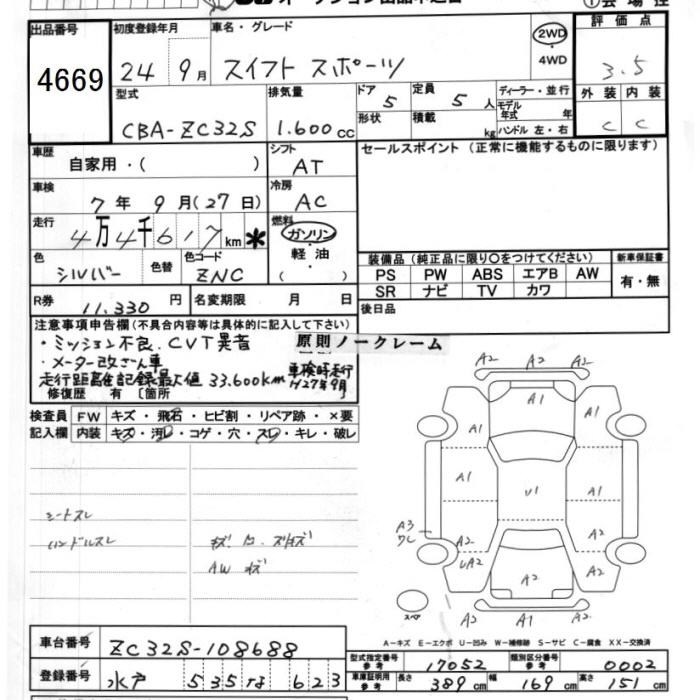 出品番号
4669
初度登録年月
24 9月
車名・グレード
スイフト スポーツ
2WD
・
4WD
評価点
3.5
外装 内装
C C
型式
CBA-ZC32S
排気量
1.600cc
ドア 5
定員 5 人
形状
積載 kg
ディーラー・並行
モデル年式 年
ハンドル 左・右
車歴
自家用・( )
シフト
AT
セールスポイント (正常に機能するものに限ります)
車検
7年 9月(27日)
冷房
AC
走行
4万4千617km *
燃料
ガソリン
・
軽油
・
( )
色
シルバー
色替
色コード
ZNC
装備品 (純正品に限り○をつけてください)
PS PW ABS エアB AW
SR ナビ TV カワ
新車保証書
有・無
R券 11.330 円
名変期限 月 日
後日品
注意事項申告欄(不具合内容等は具体的に記入して下さい)
原則ノークレーム
・ミッション不良、CVT異音
・メーター改ざん車
走行距離在記録最大値 33.600km
車検時走行
H27年9月
修復歴 有 〔箇所
検査員記入欄
FW キズ・飛石・ヒビ割・リペア跡・×要
内装 キズ・汚レ・コゲ・穴・スレ・キレ・破レ
シートスレ
ハンドルスレ
AW キズ
A2 A2 A2
A1
A1 A1
A1 U1 A1
A3
A2 A2
UA2 A2 A2
A2 A2 A2
スペア
A-キズ E-エクボ U-凹み W-補修跡 S-サビ C-腐食 XX-交換済
車台番号
ZC32S-108688
登録番号
水戸 535 な 623
型式指定番号 参考
17052
類別区分番号 参考
0002
車庫証明用 参考
長さ 389cm
幅 169cm
高さ 151cm